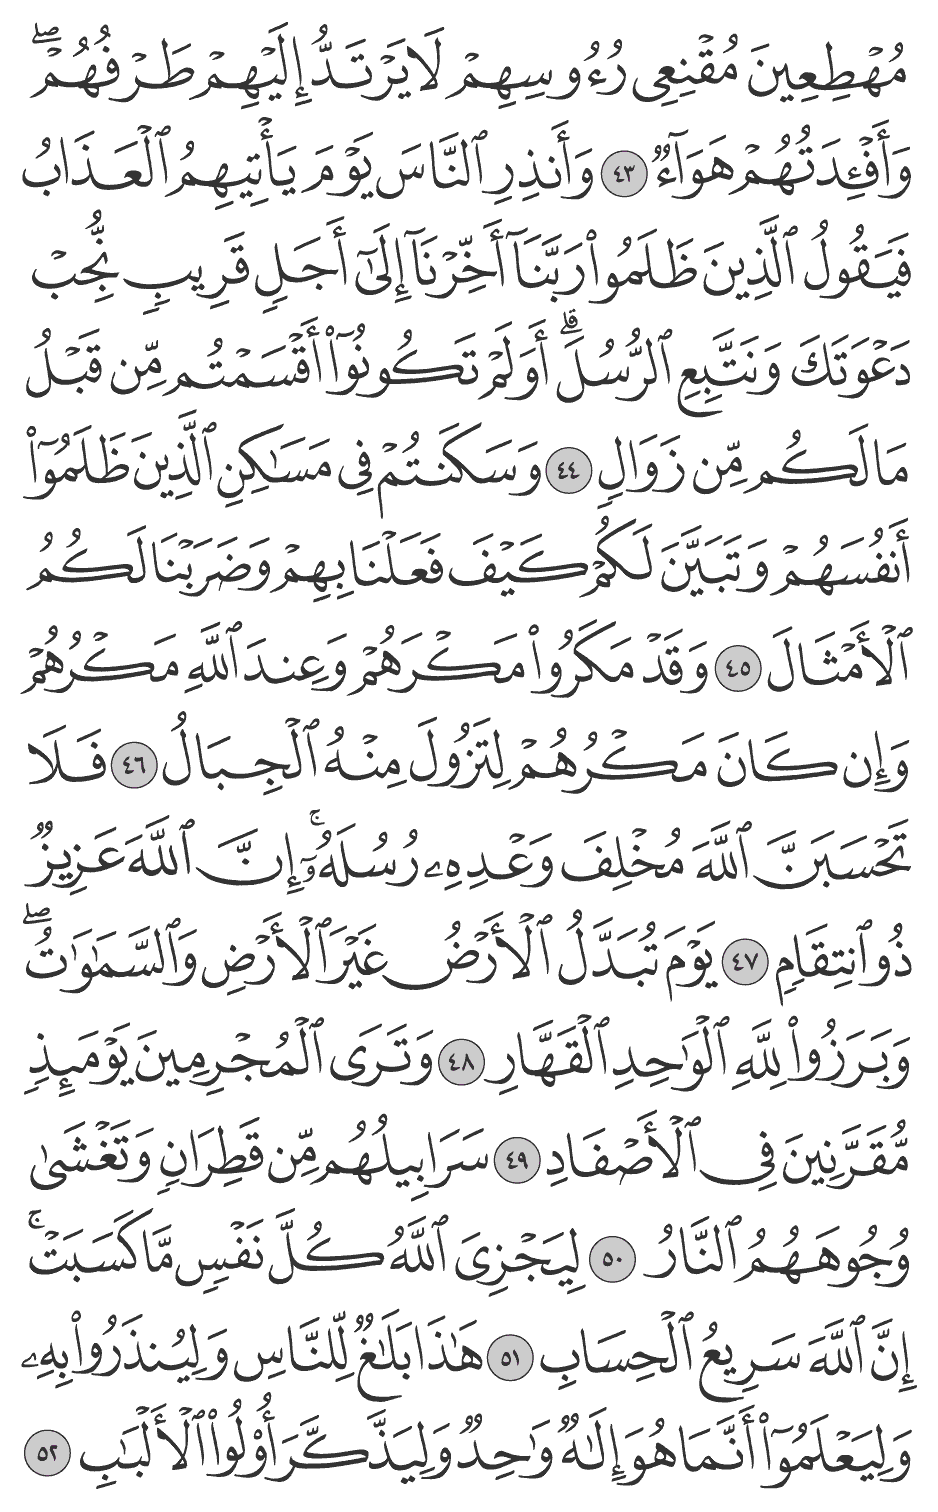 مُهۡطِعِينَ مُقۡنِعِي رُءُوسِهِمۡ لَا يَرۡتَدُّ إِلَيۡهِمۡ طَرۡفُهُمۡۖ
وَأَفۡـِٔدَتُهُمۡ هَوَآءٞ ٤٣ وَأَنذِرِ ٱلنَّاسَ يَوۡمَ يَأۡتِيهِمُ ٱلۡعَذَابُ
فَيَقُولُ ٱلَّذِينَ ظَلَمُواْ رَبَّنَآ أَخِّرۡنَآ إِلَىٰٓ أَجَلٖ قَرِيبٖ نُّجِبۡ
دَعۡوَتَكَ وَنَتَّبِعِ ٱلرُّسُلَۗ أَوَلَمۡ تَكُونُوٓاْ أَقۡسَمۡتُم مِّن قَبۡلُ
مَا لَكُم مِّن زَوَالٖ ٤٤ وَسَكَنتُمۡ فِي مَسَٰكِنِ ٱلَّذِينَ ظَلَمُوٓاْ
أَنفُسَهُمۡ وَتَبَيَّنَ لَكُمۡ كَيۡفَ فَعَلۡنَا بِهِمۡ وَضَرَبۡنَا لَكُمُ
ٱلۡأَمۡثَالَ ٤٥ وَقَدۡ مَكَرُواْ مَكۡرَهُمۡ وَعِندَ ٱللَّهِ مَكۡرُهُمۡ
وَإِن كَانَ مَكۡرُهُمۡ لِتَزُولَ مِنۡهُ ٱلۡجِبَالُ ٤٦ فَلَا
تَحۡسَبَنَّ ٱللَّهَ مُخۡلِفَ وَعۡدِهِۦ رُسُلَهُۥٓۚ إِنَّ ٱللَّهَ عَزِيزٞ
ذُو ٱنتِقَامٖ ٤٧ يَوۡمَ تُبَدَّلُ ٱلۡأَرۡضُ غَيۡرَ ٱلۡأَرۡضِ وَٱلسَّمَٰوَٰتُۖ
وَبَرَزُواْ لِلَّهِ ٱلۡوَٰحِدِ ٱلۡقَهَّارِ ٤٨ وَتَرَى ٱلۡمُجۡرِمِينَ يَوۡمَئِذٖ
مُّقَرَّنِينَ فِي ٱلۡأَصۡفَادِ ٤٩ سَرَابِيلُهُم مِّن قَطِرَانٖ وَتَغۡشَىٰ
وُجُوهَهُمُ ٱلنَّارُ ٥٠ لِيَجۡزِيَ ٱللَّهُ كُلَّ نَفۡسٖ مَّا كَسَبَتۡۚ
إِنَّ ٱللَّهَ سَرِيعُ ٱلۡحِسَابِ ٥١ هَٰذَا بَلَٰغٞ لِّلنَّاسِ وَلِيُنذَرُواْ بِهِۦ
وَلِيَعۡلَمُوٓاْ أَنَّمَا هُوَ إِلَٰهٞ وَٰحِدٞ وَلِيَذَّكَّرَ أُوْلُواْ ٱلۡأَلۡبَٰبِ ٥٢